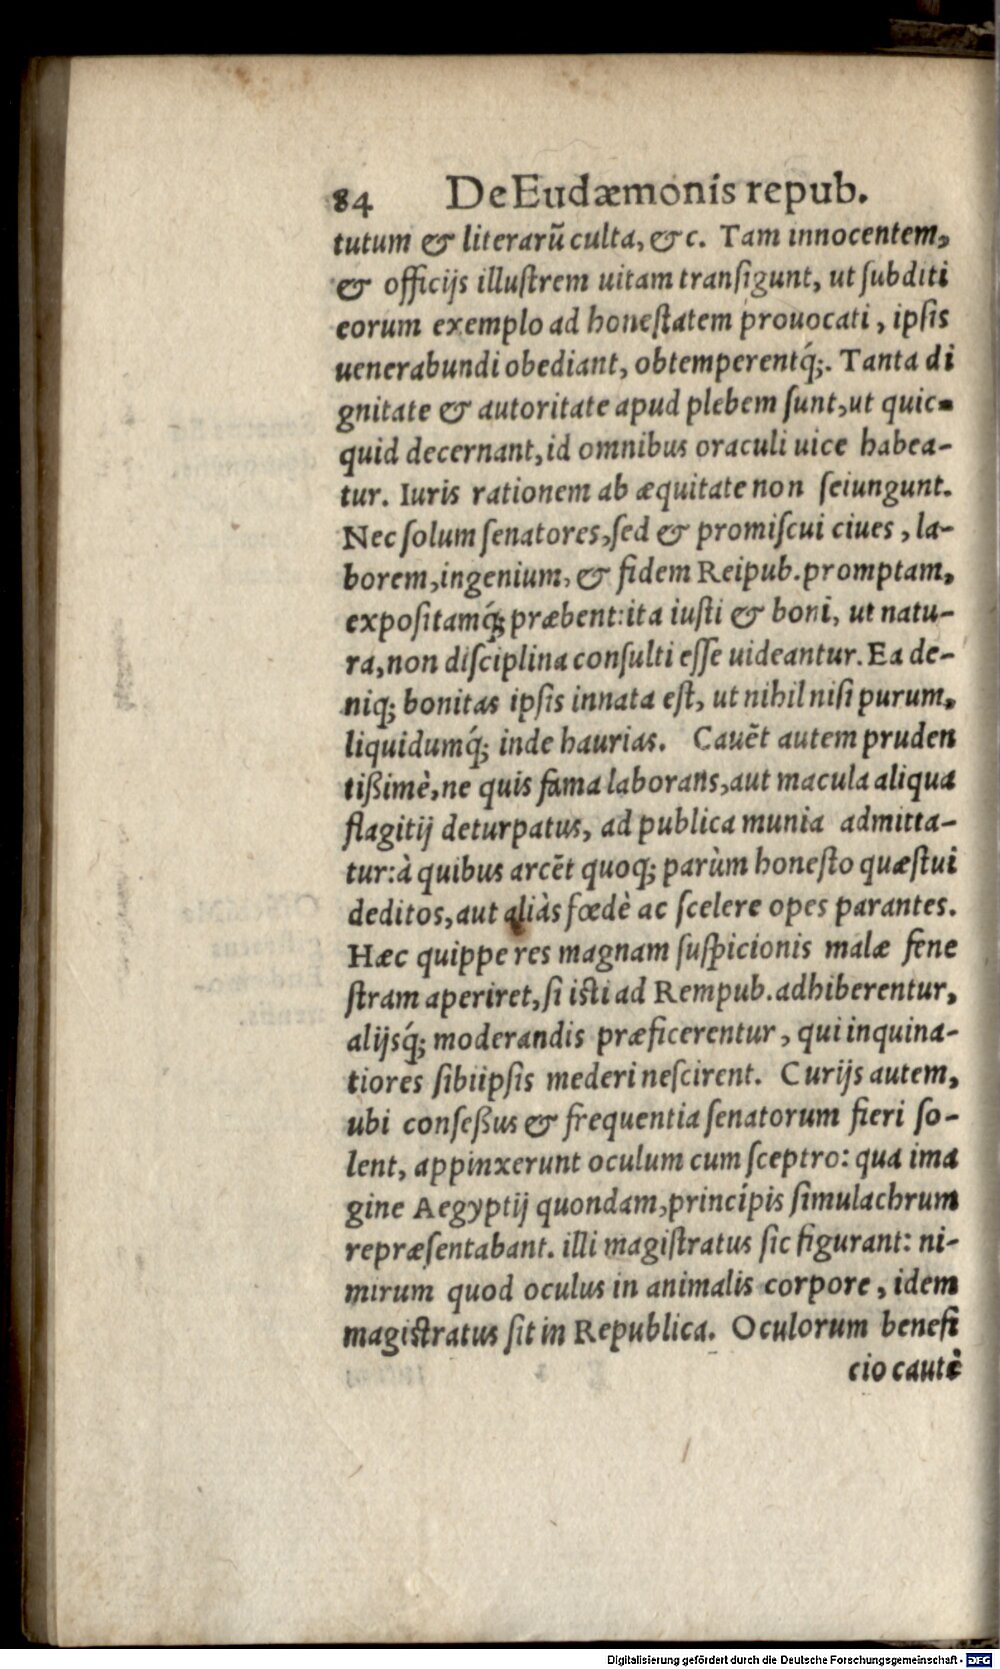 84 De Eudæmonis repub.
tutum & literarũ culta, &c. Tam innocentem,
& officijs illuſtrem uitam tranſigunt, ut ſubditi
eorum exemplo ad honeſtatem prouocati, ipſis
uenerabundi obediant, obtemperentq́;. Tanta di
gnitate & autoritate apud plebem ſunt, ut quic-
quid decernant, id omnibus oraculi uice habea-
tur. Iuris rationem ab æquitate non ſeiungunt.
Nec ſolum ſenatores, ſed & promiſcui ciues, la-
borem, ingenium, & fidem Reipub. promptam,
expoſitamq́; præbent: ita iuſti & boni, ut natu-
ra, non diſciplina conſulti eſſe uideantur. Ea de-
niq; bonitas ipſis innata eſt, ut nihil niſi purum,
liquidumq́; inde haurias. Cauẽt autem pruden
tißimè, ne quis fama laborans, aut macula aliqua
flagitij deturpatus, ad publica munia admitta-
tur: à quibus arcẽt quoq; parùm honeſto quæſtui
deditos, aut aliàs fœdè ac ſcelere opes parantes.
Hæc quippe res magnam ſuſpicionis malæ fene
ſtram aperiret, ſi iſti ad Rempub. adhiberentur,
alijsq́; moderandis præficerentur, qui inquina-
tiores ſibiipſis mederi neſcirent. Curijs autem,
ubi conſeßus & frequentia ſenatorum fieri ſo-
lent, appinxerunt oculum cum ſceptro: qua ima
gine Aegyptij quondam, principis ſimulachrum
repræſentabant. illi magiſtratus ſic figurant: ni-
mirum quod oculus in animalis corpore, idem
magiſtratus ſit in Republica. Oculorum benefi
cio cautè
Digitalisierung gefördert durch die Deutsche Forschungsgemeinschaft - DFG